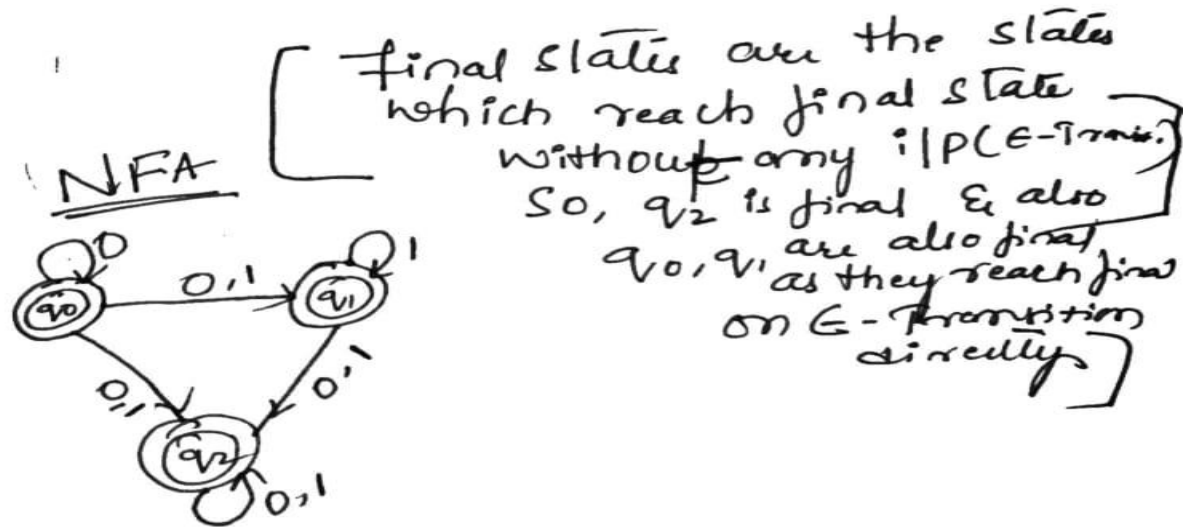 [ final states are the states
which reach final state
without any i/p (ε-Trans.) ]
So, q2 is final & also
q0, q1 are also final
as they reach final
on ε-Transition
directly ]
NFA
0
1
q0
0,1
q1
0,1
0,1
q2
0,1